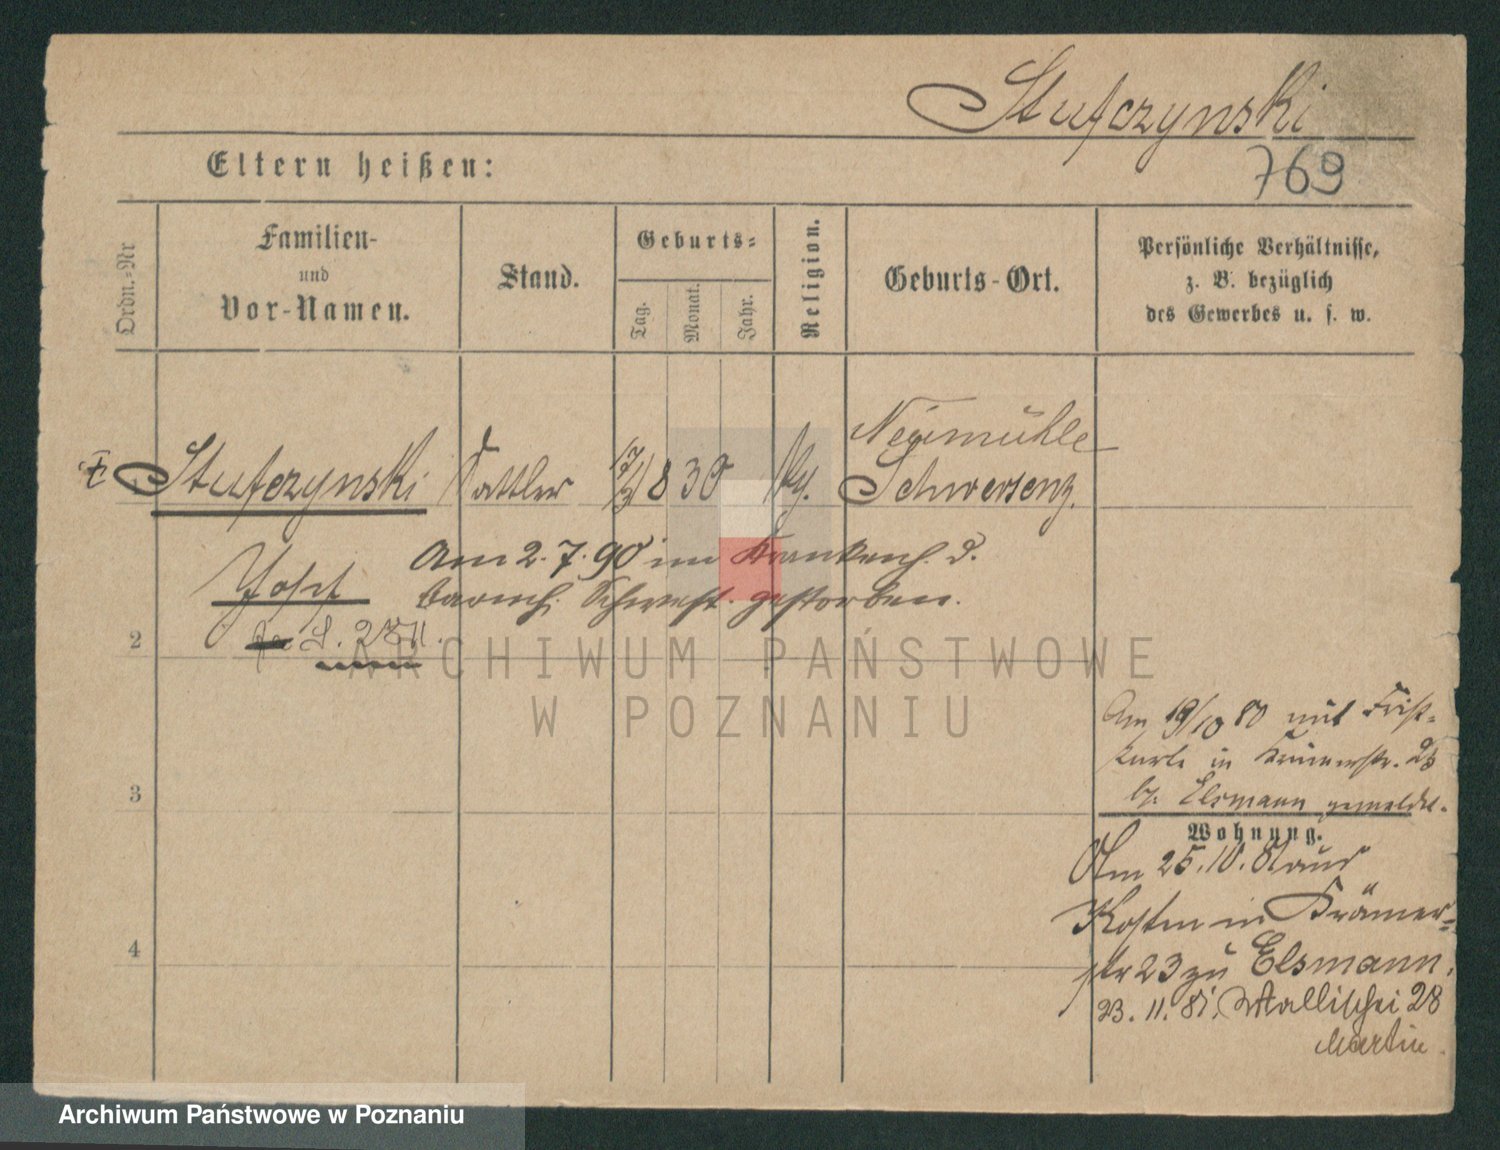 Stufczynski
769
Eltern heißen:
Ordn.-Nr
Familien-
und
Vor-Namen.
Stand.
Geburts-
Tag.
Monat.
Jahr.
Religion.
Geburts-Ort.
Persönliche Verhältnisse,
z. B. bezüglich
des Gewerbes u. s. w.
Stufczynski Sattler 17/3 830 Neumühle
Schwersenz.
Josef
Am 2.7.90 im Krankenh. d.
barmh. Schwest. gestorben.
2
ARCHIWUM PAŃSTWOWE
W POZNANIU
Am 19/10 80 mit
in
Elsmann gemeldet.
3
Wohnung.
Am 25.10. aus
Kosten in Krämer-
str 23 zu Elsmann.
4
23.11.81. Wallischei 28
Martin.
Archiwum Państwowe w Poznaniu